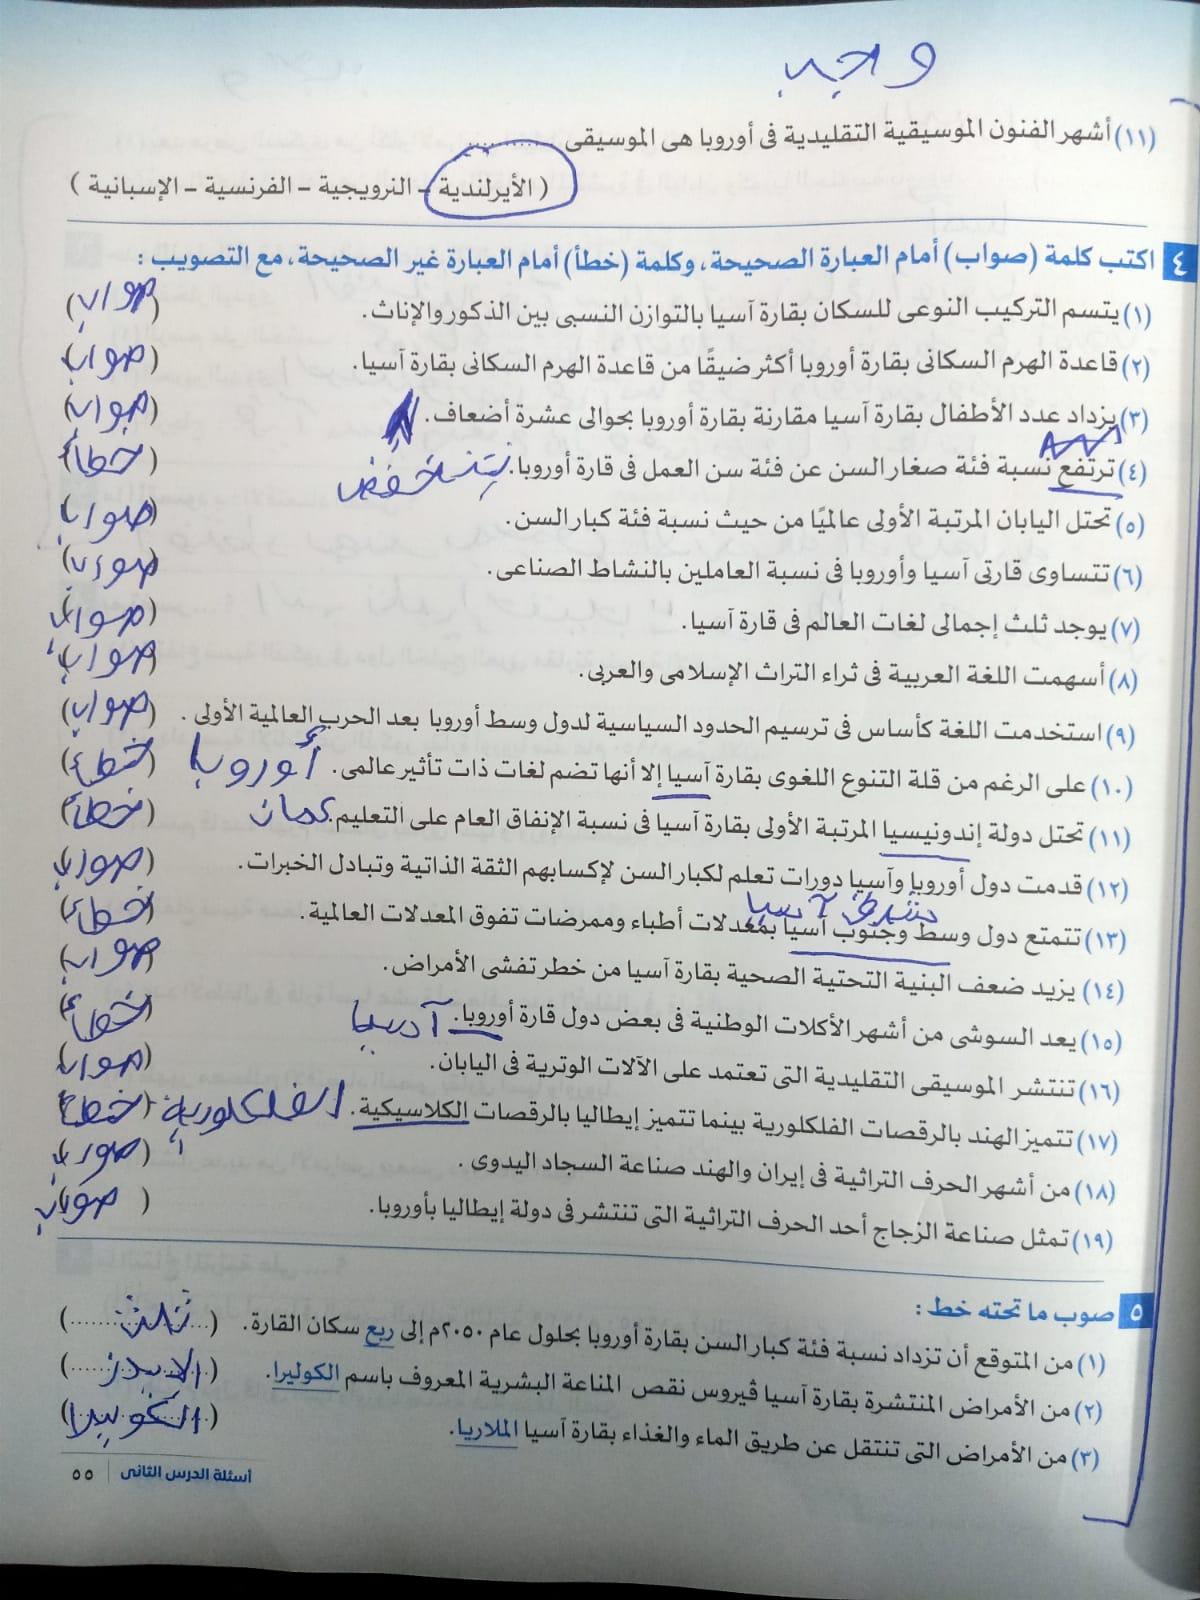 واجب
(١١) أشهر الفنون الموسيقية التقليدية فى أوروبا هى الموسيقى ............
( الأيرلندية - النرويجية - الفرنسية - الإسبانية )
٤ اكتب كلمة (صواب) أمام العبارة الصحيحة، وكلمة (خطأ) أمام العبارة غير الصحيحة، مع التصويب :
(١) يتسم التركيب النوعى للسكان بقارة آسيا بالتوازن النسبى بين الذكور والإناث. (صواب)
(٢) قاعدة الهرم السكانى بقارة أوروبا أكثر ضيقًا من قاعدة الهرم السكانى بقارة آسيا. (صواب)
(٣) يزداد عدد الأطفال بقارة آسيا مقارنة بقارة أوروبا بحوالى عشرة أضعاف. (صواب)
(٤) ترتفع نسبة فئة صغار السن عن فئة سن العمل فى قارة أوروبا. تنخفض (خطأ)
(٥) تحتل اليابان المرتبة الأولى عالميًا من حيث نسبة فئة كبار السن. (صواب)
(٦) تتساوى قارتى آسيا وأوروبا فى نسبة العاملين بالنشاط الصناعى. (صواب)
(٧) يوجد ثلث إجمالى لغات العالم فى قارة آسيا. (صواب)
(٨) أسهمت اللغة العربية فى ثراء التراث الإسلامى والعربى. (صواب)
(٩) استخدمت اللغة كأساس فى ترسيم الحدود السياسية لدول وسط أوروبا بعد الحرب العالمية الأولى . (صواب)
(١٠) على الرغم من قلة التنوع اللغوى بقارة آسيا إلا أنها تضم لغات ذات تأثير عالمى. أوروبا (خطأ)
(١١) تحتل دولة إندونيسيا المرتبة الأولى بقارة آسيا فى نسبة الإنفاق العام على التعليم. عمان (خطأ)
(١٢) قدمت دول أوروبا وآسيا دورات تعلم لكبار السن لإكسابهم الثقة الذاتية وتبادل الخبرات. (صواب)
شرق آسيا
(١٣) تتمتع دول وسط وجنوب آسيا بمعدلات أطباء وممرضات تفوق المعدلات العالمية. (خطأ)
(١٤) يزيد ضعف البنية التحتية الصحية بقارة آسيا من خطر تفشى الأمراض. (صواب)
(١٥) يعد السوشى من أشهر الأكلات الوطنية فى بعض دول قارة أوروبا. آسيا (خطأ)
(١٦) تنتشر الموسيقى التقليدية التى تعتمد على الآلات الوترية فى اليابان. (صواب)
(١٧) تتميز الهند بالرقصات الفلكلورية بينما تتميز إيطاليا بالرقصات الكلاسيكية. الفلكلورية (خطأ)
(١٨) من أشهر الحرف التراثية فى إيران والهند صناعة السجاد اليدوى . (صواب)
(١٩) تمثل صناعة الزجاج أحد الحرف التراثية التى تنتشر فى دولة إيطاليا بأوروبا. (صواب)
٥ صوب ما تحته خط :
(١) من المتوقع أن تزداد نسبة فئة كبار السن بقارة أوروبا بحلول عام ٢٠٥٠م إلى ربع سكان القارة. (ثلث)
(٢) من الأمراض المنتشرة بقارة آسيا ڤيروس نقص المناعة البشرية المعروف باسم الكوليرا. (الايدز)
(٣) من الأمراض التى تنتقل عن طريق الماء والغذاء بقارة آسيا الملاريا.
أسئلة الدرس الثانى | ٥٥